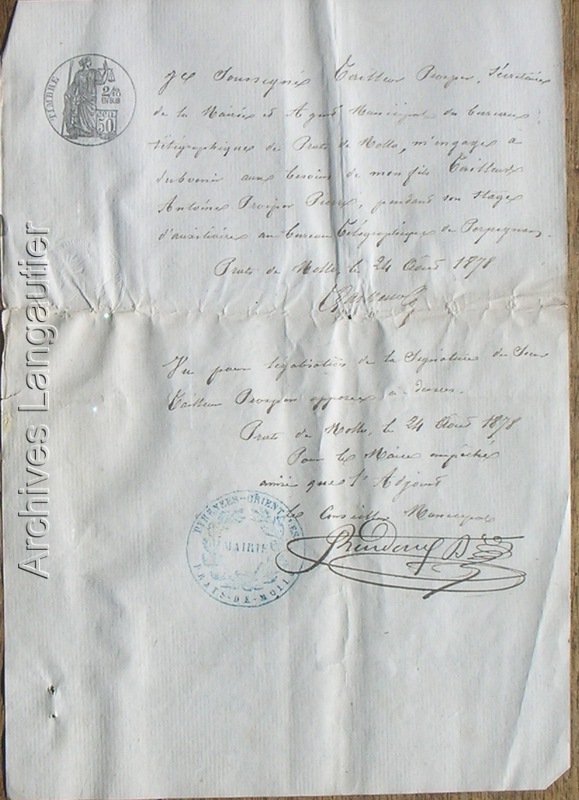 TIMBRE
2/10
EN SUS
50
Je Soussigné Tailleur Prosper, Secrétaire
de la Mairie et Agent Municipal du bureau
télégraphique de Prats de Mollo, m'engage a
subvenir aux besoins de mon fils Tailleur
Antoine Prosper Pierre, pendant son stage
d'auxiliaire au bureau Télégraphique de Perpignan.
Prats de Mollo, le 24 Août 1878
Vu pour légalisation de la Signature du Sieur
Tailleur Prosper apposée ci-dessus.
Prats de Mollo, le 24 Août 1878
Pour le Maire empêché
ainsi que l'Adjoint
Le Conseiller Municipal
PYRÉNÉES-ORIENTALES
MAIRIE
PRATS-DE-MOLLO
Archives Langautier